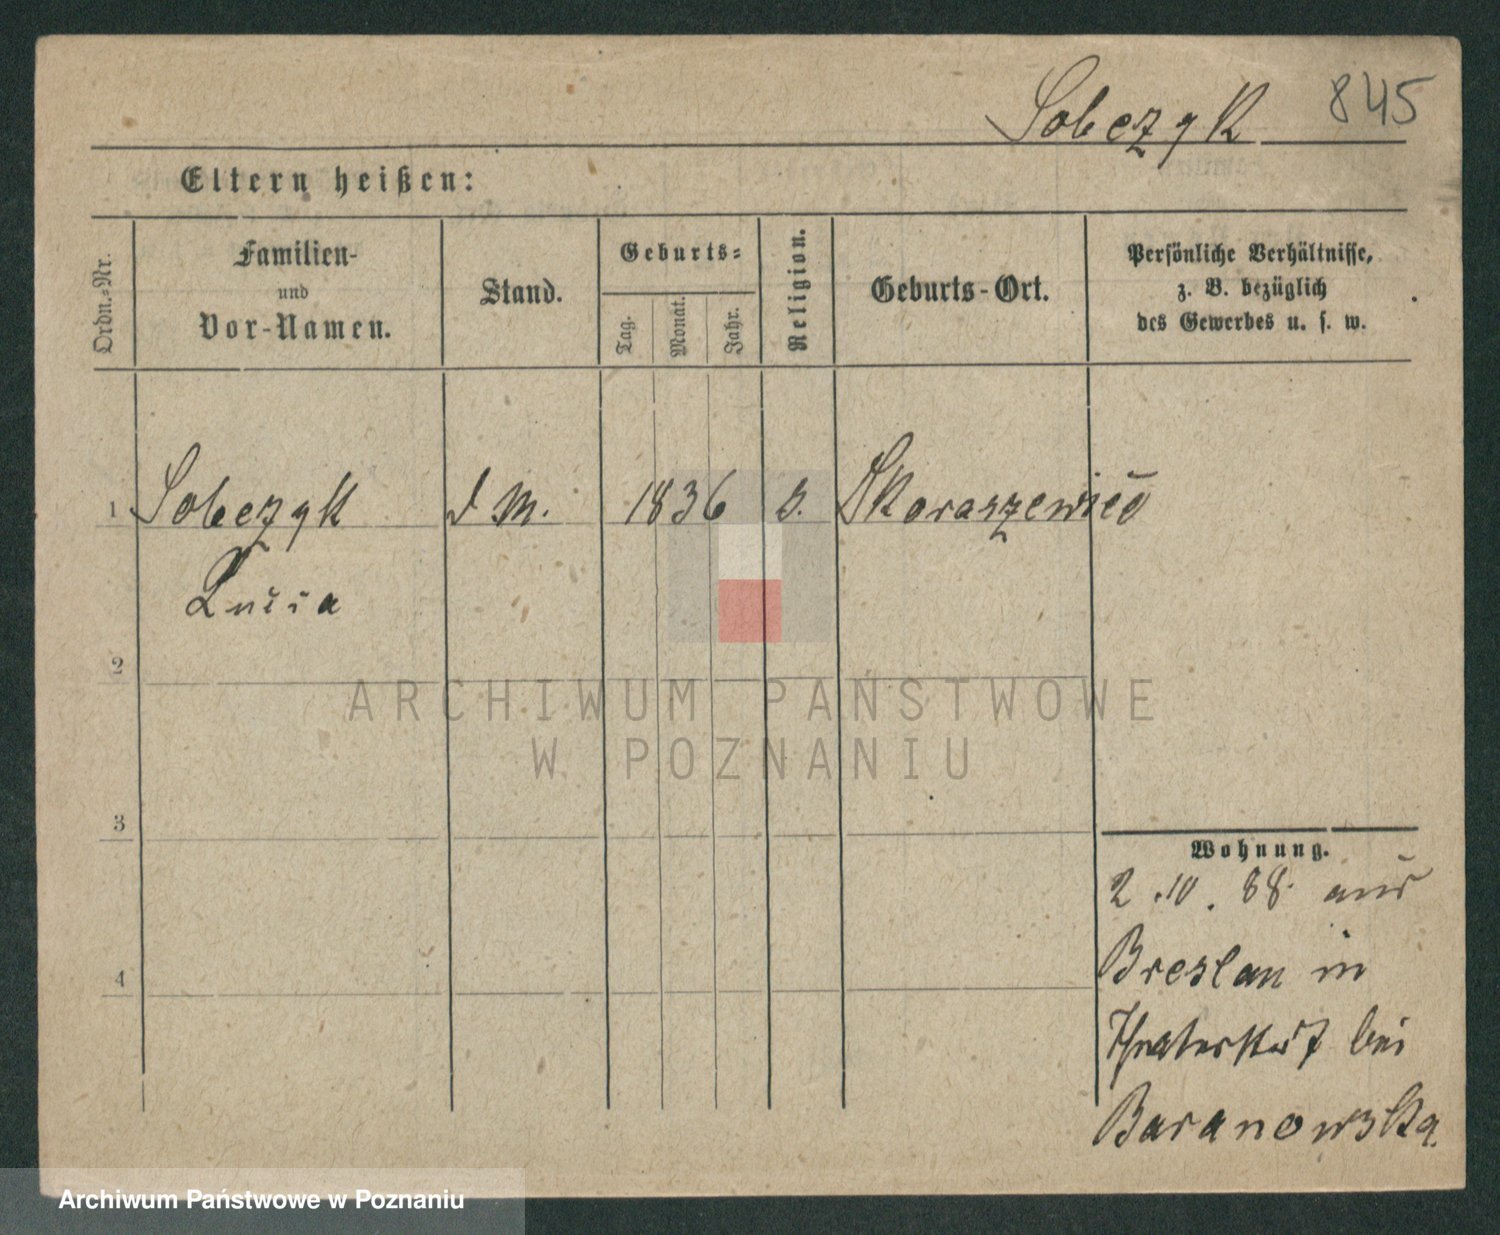 Sobczyk 845
Eltern heißen:
Ordn.-Nr.
Familien-
und
Vor-Namen.
Stand.
Geburts-
Tag.
Monat.
Jahr.
Religion.
Geburts-Ort.
Persönliche Verhältnisse,
z. B. bezüglich
des Gewerbes u. s. w.
1 Sobezyk d M. 1836 Skoraszewicé
2
3
4
Wohnung.
2.10.88. aus
Breslau in
bei
Baranowska
ARCHIWUM PAŃSTWOWE
W POZNANIU
Archiwum Państwowe w Poznaniu